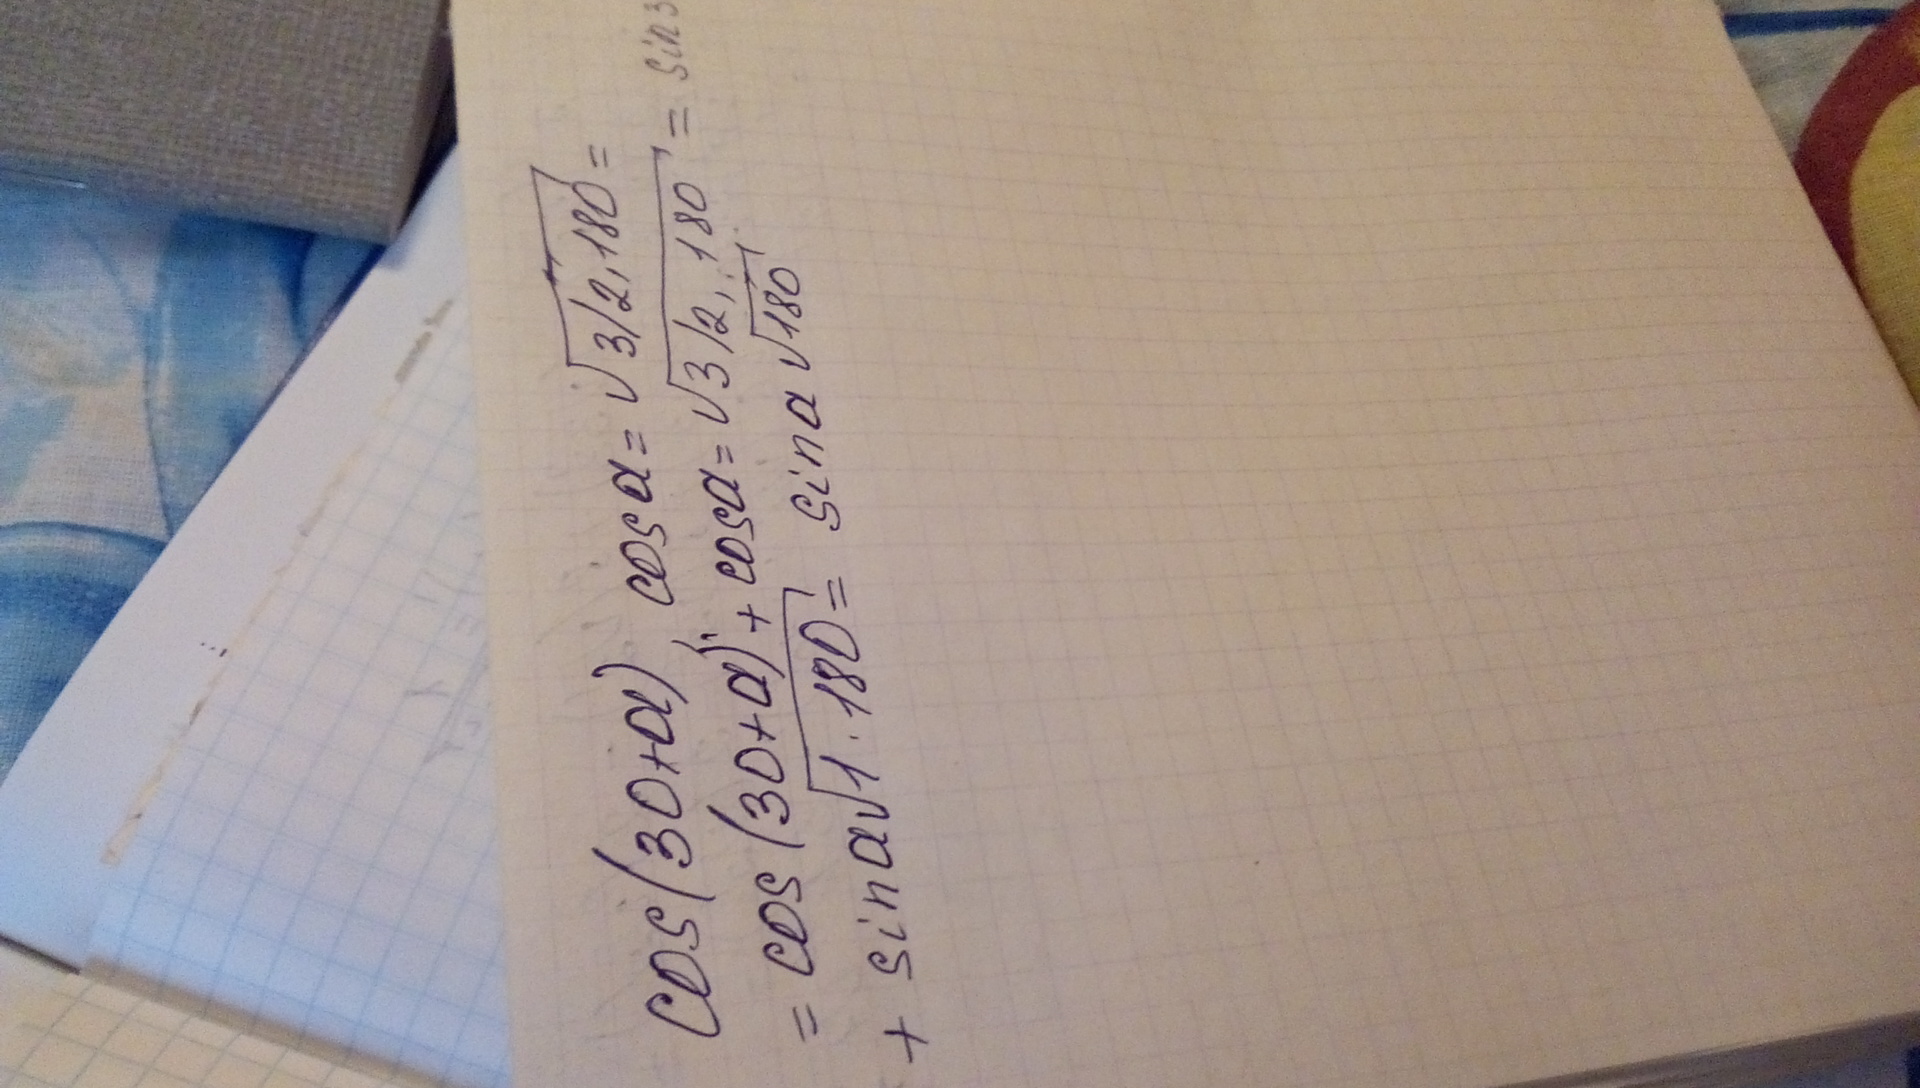 cos(30+a) cos a=√3/2,180=
=cos(30+a)+cosa=√3/2,180=sin3
+sina√1.180=sina√180